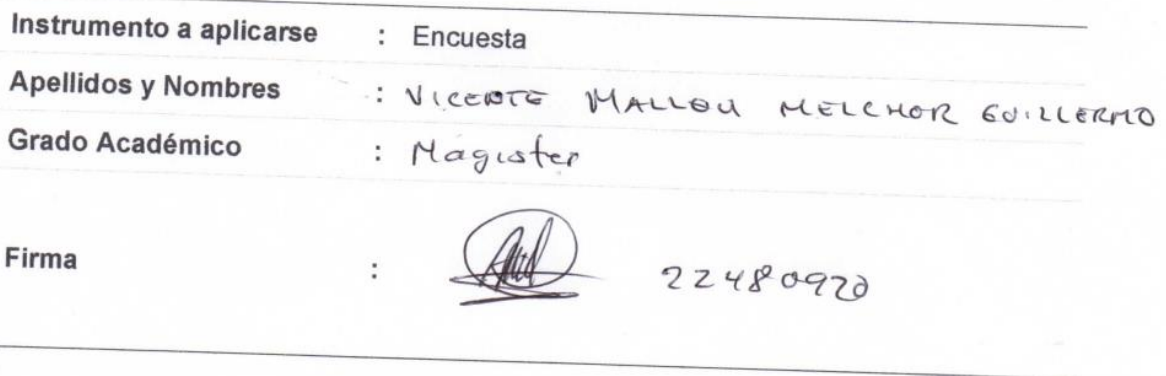 Instrumento a aplicarse : Encuesta
Apellidos y Nombres : VICENTE MALLQU MELCHOR GUILLERMO
Grado Académico : Magister
Firma : 22480920